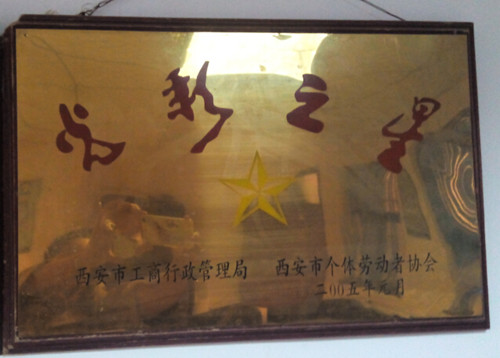 光彩之星
西安市工商行政管理局 西安市个体劳动者协会
二00五年元月